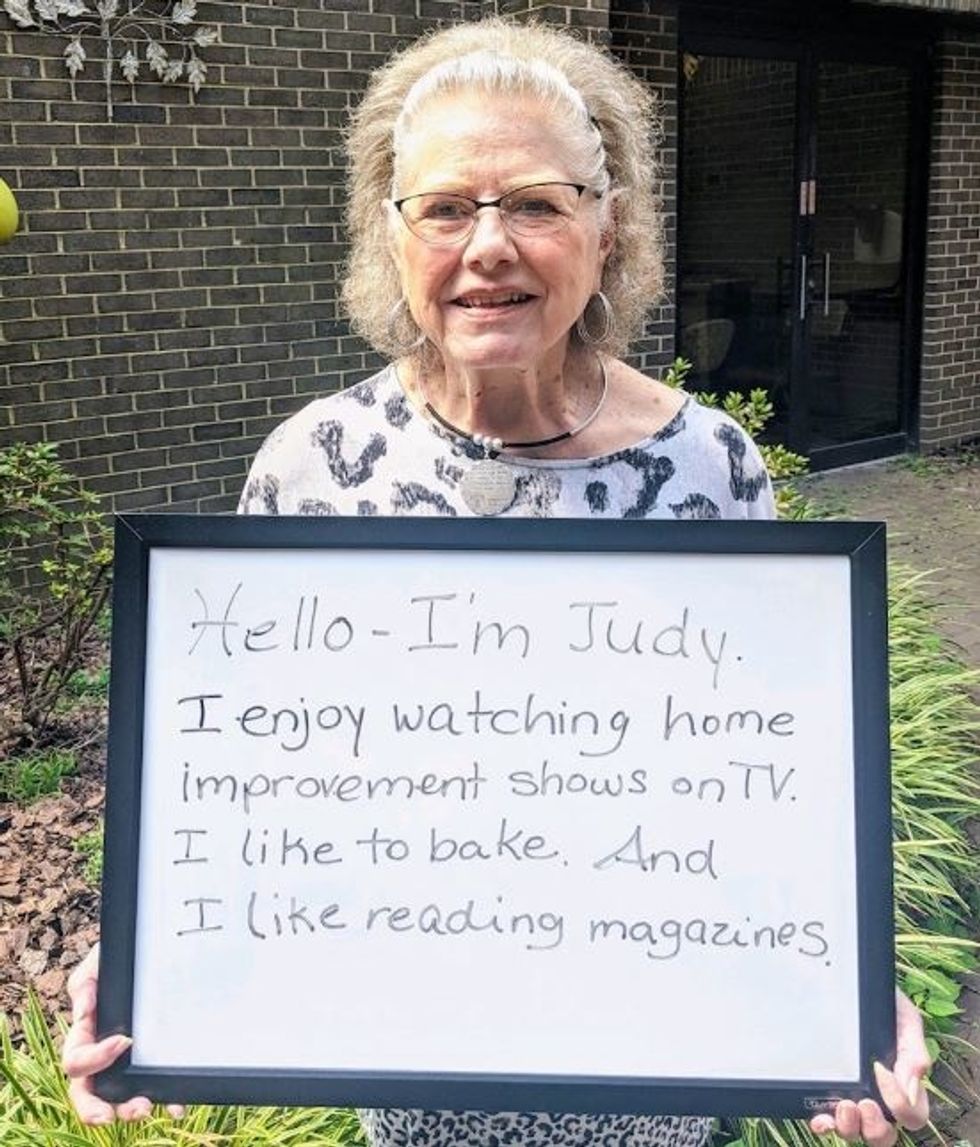 Hello - I'm Judy.
I enjoy watching home
improvement shows on TV.
I like to bake. And
I like reading magazines.